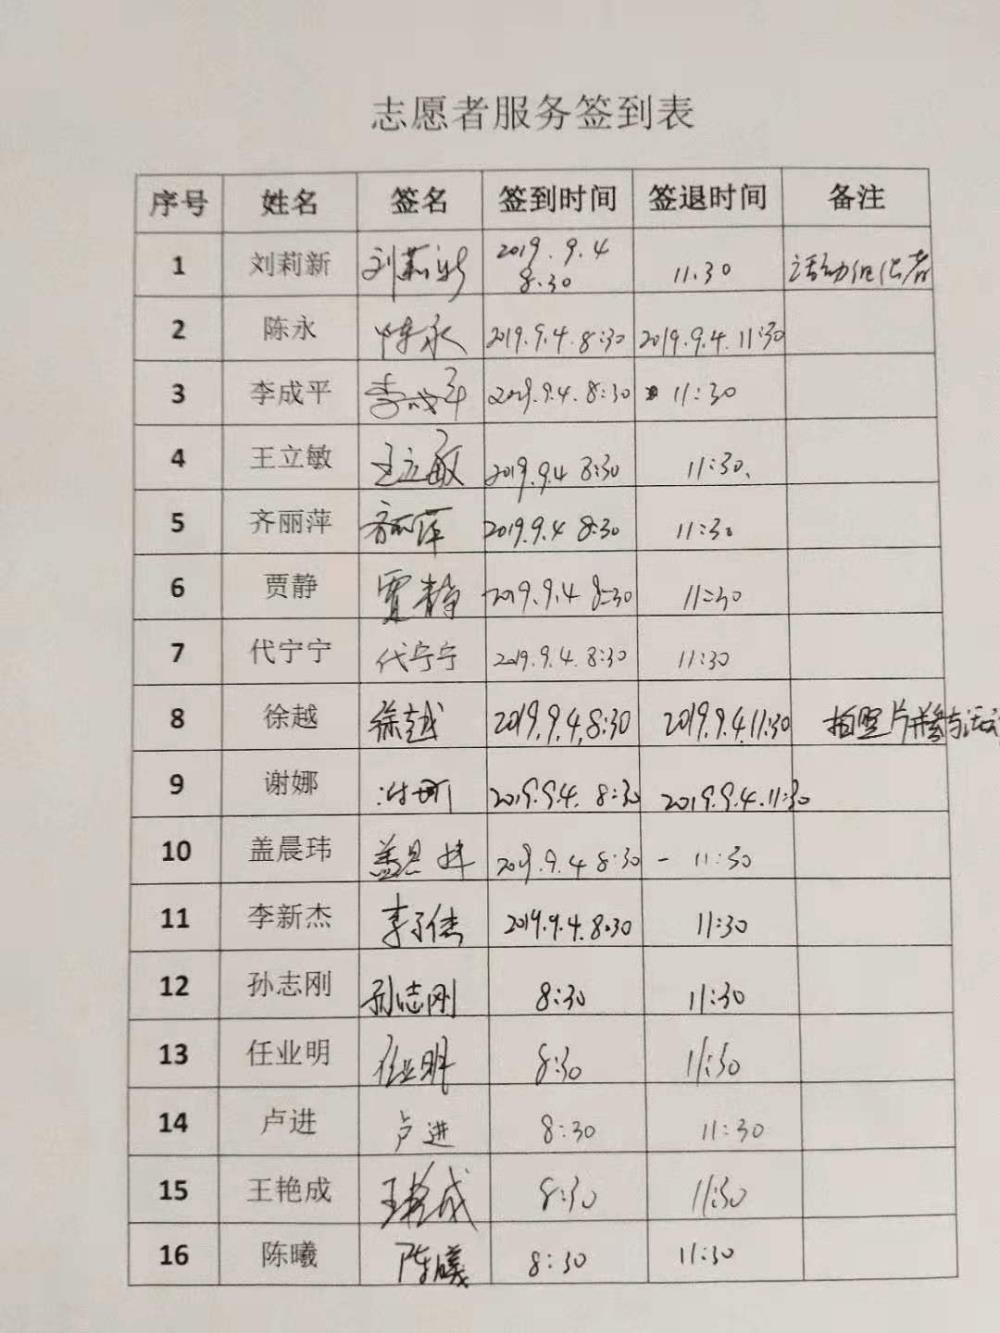 志愿者服务签到表
序号 姓名 签名 签到时间 签退时间 备注
1 刘莉新 刘莉新 2019.9.4 8.30 11.30 活动组织者
2 陈永 陈永 2019.9.4.8:30 2019.9.4.11:30
3 李成平 李成平 2019.9.4.8:30 11:30
4 王立敏 王立敏 2019.9.4 8:30 11:30、
5 齐丽萍 齐丽萍 2019.9.4 8:30 11:30
6 贾静 贾静 2019.9.4 8:30 11:30
7 代宁宁 代宁宁 2019.9.4.8:30 11:30
8 徐越 徐越 2019.9.4.8:30 2019.9.4.11:30 拍照片并参与活动
9 谢娜 谢娜 2019.9.4. 8:30 2019.9.4.11:30
10 盖晨玮 盖晨玮 2019.9.4 8:30 - 11:30
11 李新杰 2019.9.4.8:30 11:30
12 孙志刚 孙志刚 8:30 11:30
13 任业明 任业明 8:30 11:30
14 卢进 卢进 8:30 11:30
15 王艳成 王艳成 8:30 11:30
16 陈曦 陈曦 8:30 11:30